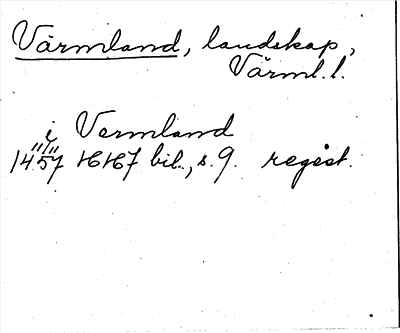 Värmland, landskap,
Värml. l.
i Vermland
14 11/11 57 HH7 bil., s. 9. regest.